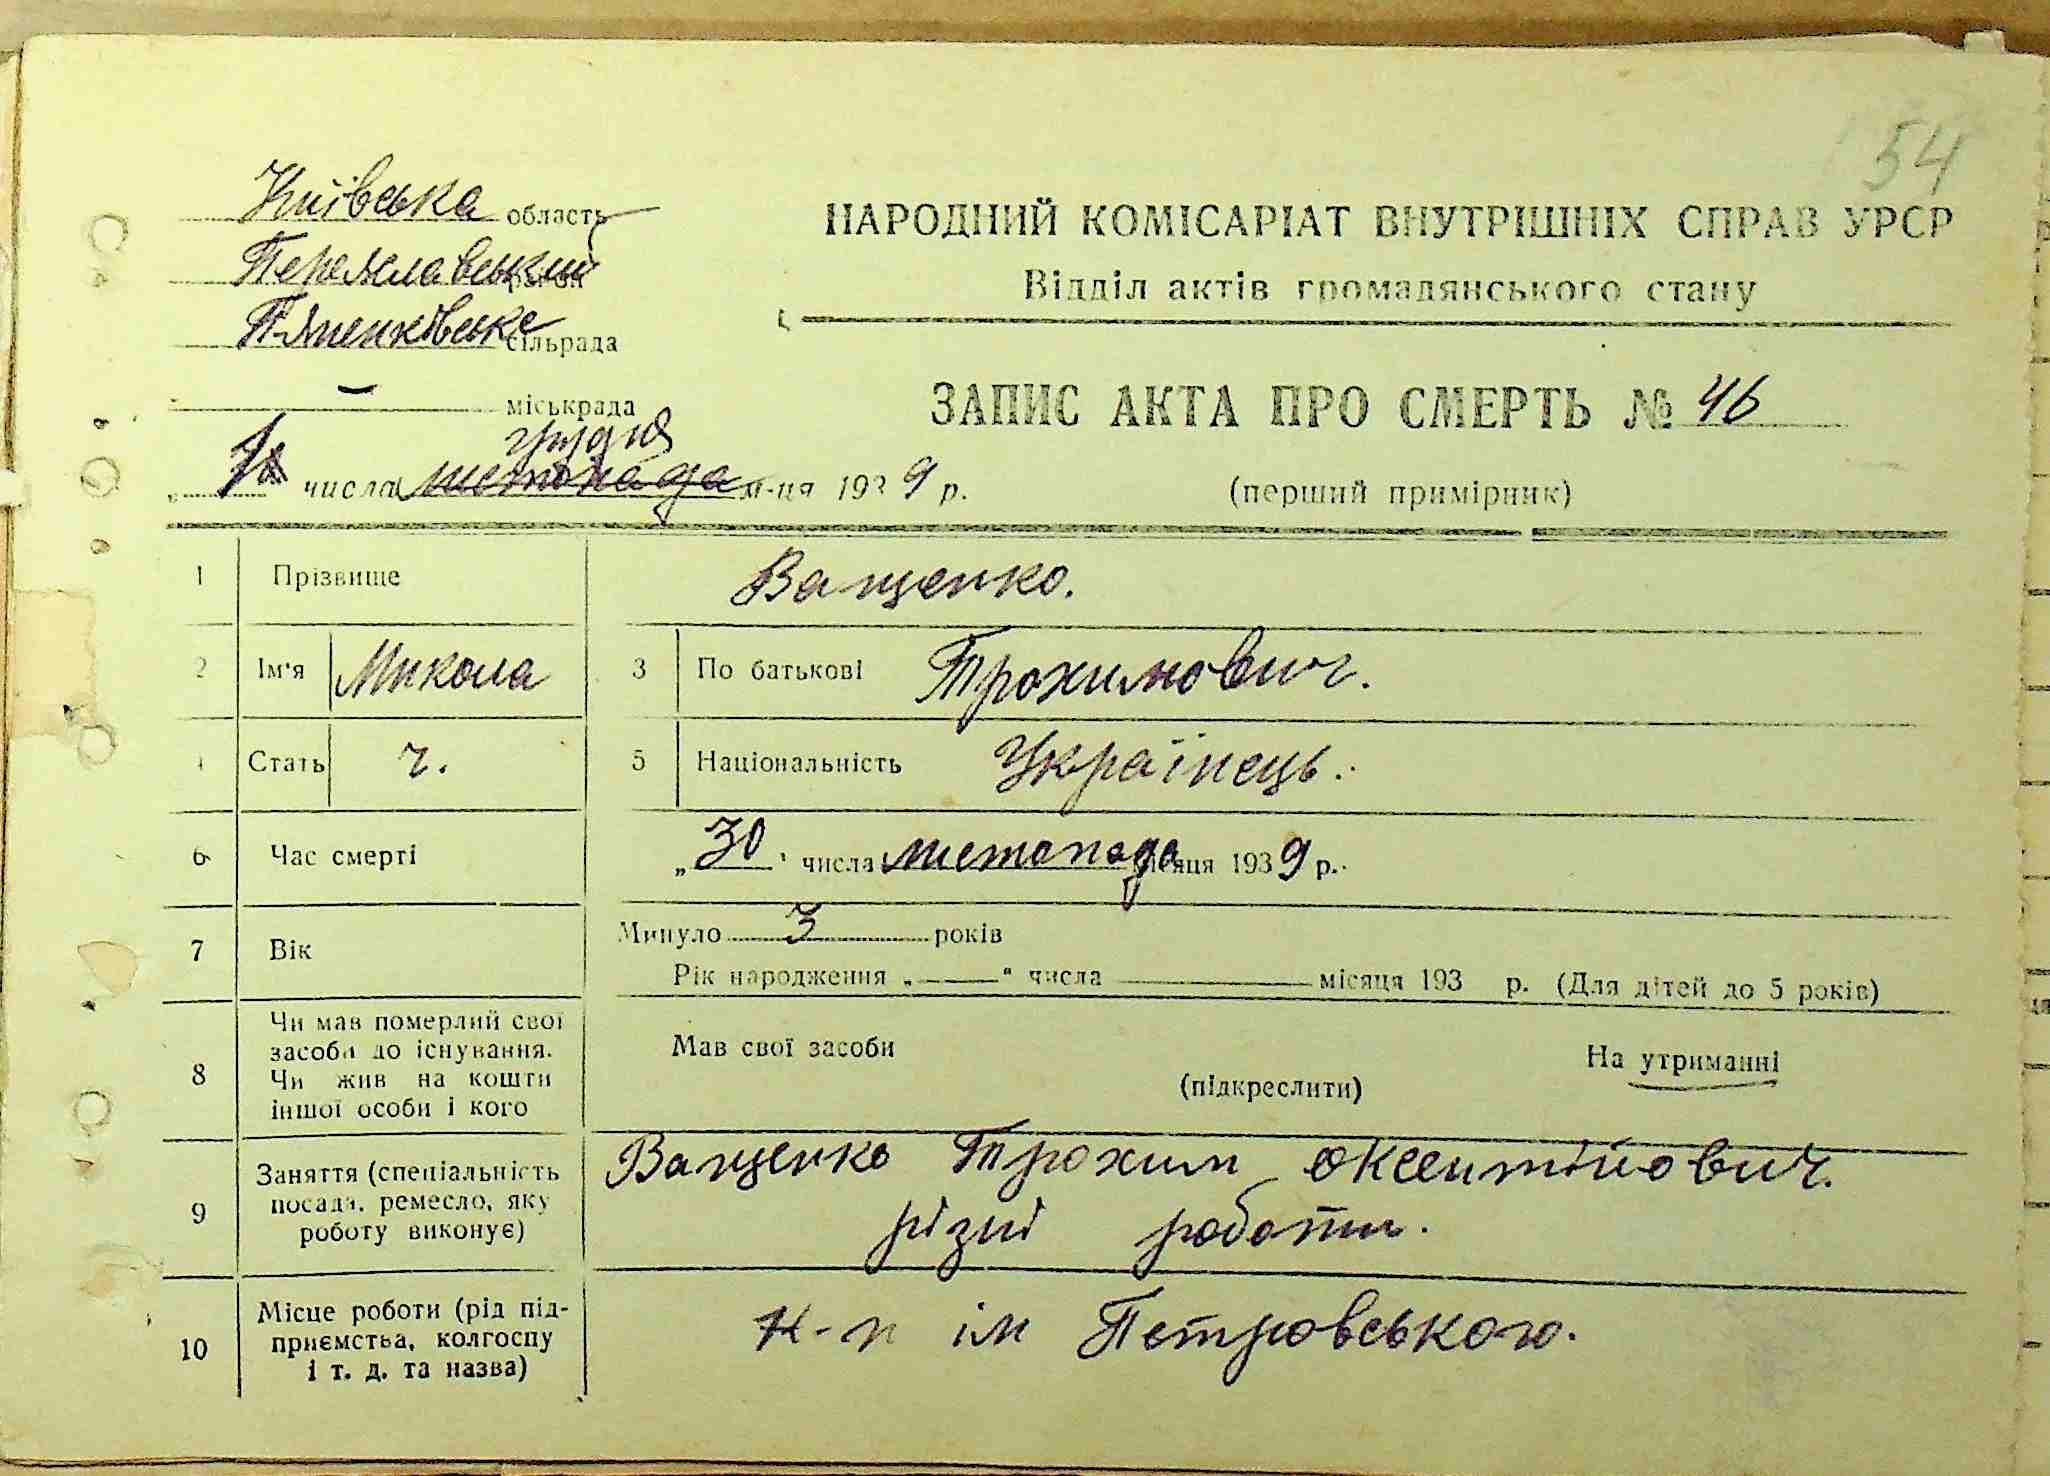 54
Київська область
Переяславський район
сільрада
НАРОДНИЙ КОМІСАРІАТ ВНУТРІШНІХ СПРАВ УРСР
Відділ актів громадянського стану
— міськрада
ЗАПИС АКТА ПРО СМЕРТЬ № 46
грудня
числа листопада м-ця 1939 р.
(перший примірник)
1 Прізвище Ващенко.
2 Ім'я Микола 3 По батькові Трохимович.
4 Стать ч. 5 Національність Українець.
6 Час смерті „30" числа листопада місяця 1939 р.
7 Вік Минуло 3 років
Рік народження „——" числа —— місяця 193 р. (Для дітей до 5 років)
8 Чи мав померлий свої засоби до існування. Чи жив на кошти іншої особи і кого
Мав свої засоби На утриманні
(підкреслити)
9 Заняття (спеціальність посада, ремесло, яку роботу виконує)
Ващенко Трохим Оксентійович.
різні роботи.
10 Місце роботи (рід підприємства, колгоспу і т. д. та назва)
к-п ім Петровського.